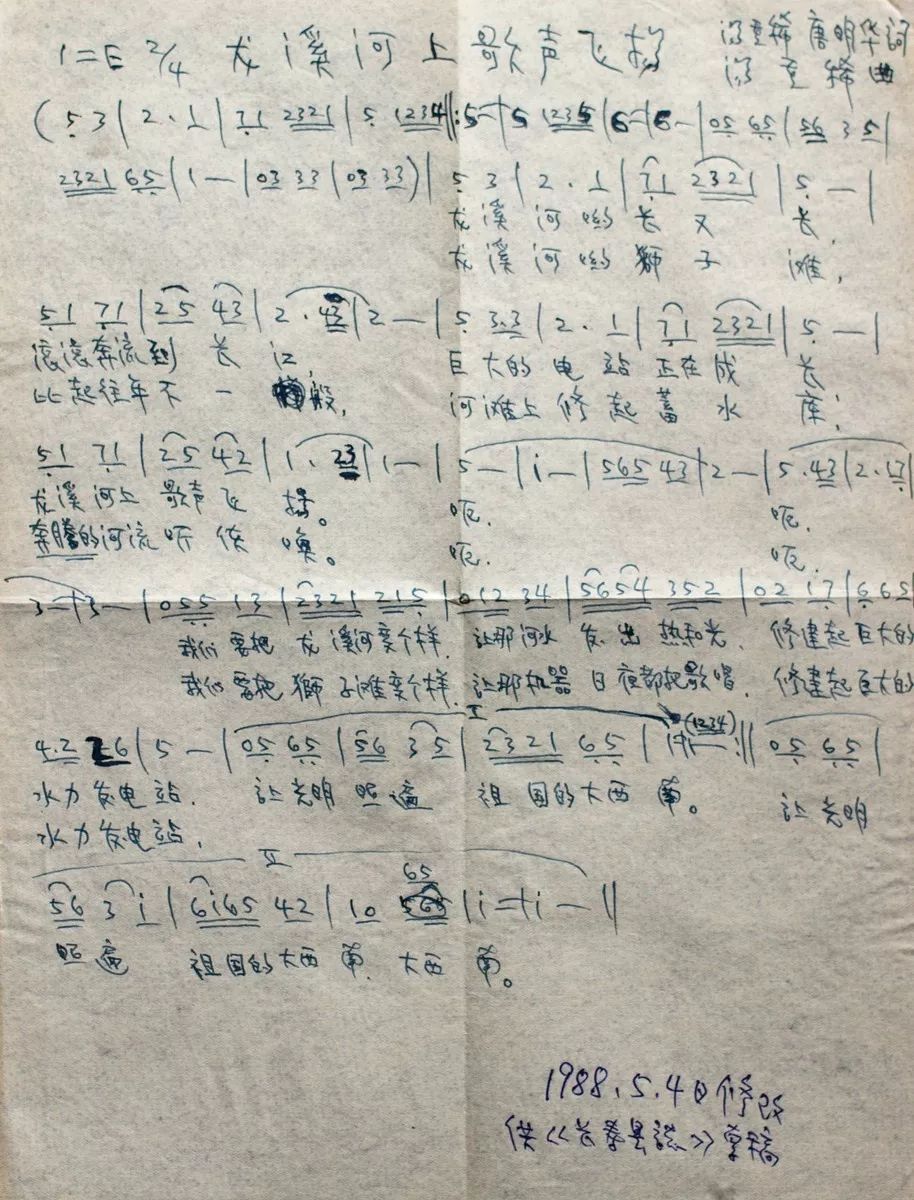 1=E 2/4 龙溪河上歌声飞扬 唐明华词
曲
(5 3|2·1|71 2321|5 1234‖:5-|5 1235|6-|6-|05 65|56 35|
2321 65|1-|03 33|03 33)|5 3|2·1|71 2321|5-|
龙溪河哟长又长,
龙溪河哟狮子滩,
51 71|25 43|2·43|2-|5 3.3|2·1|71 2321|5-|
滚滚奔流到长江 巨大的电站正在成长
比起往年不一般, 河滩上修起蓄水库;
51 71|25 42|1·23|1-|5-|i-|565 43|2-|5·43|2·17|
龙溪河上歌声飞扬。 呃. 呃.
奔腾的河流听使唤。 呃. 呃.
3-|3-|055 13|2321 215|012 34|5654 352|02 17|6 65|
我们要把龙溪河变个样, 让那河水发出热和光. 修建起巨大的
我们要把狮子滩变个样, 让那机器日夜都把歌唱. 修建起巨大的
I
4.2 26|5-|05 65|56 35|2321 65|1-|1-(1234):‖05 65|
水力发电站. 让光明照遍祖国的大西南。 让光明
水力发电站.
II
65
56 3i|6i65 42|10 |i-|i-‖
照遍祖国的大西南. 大西南。
1988.5.4日修改
供《长寿县志》草稿